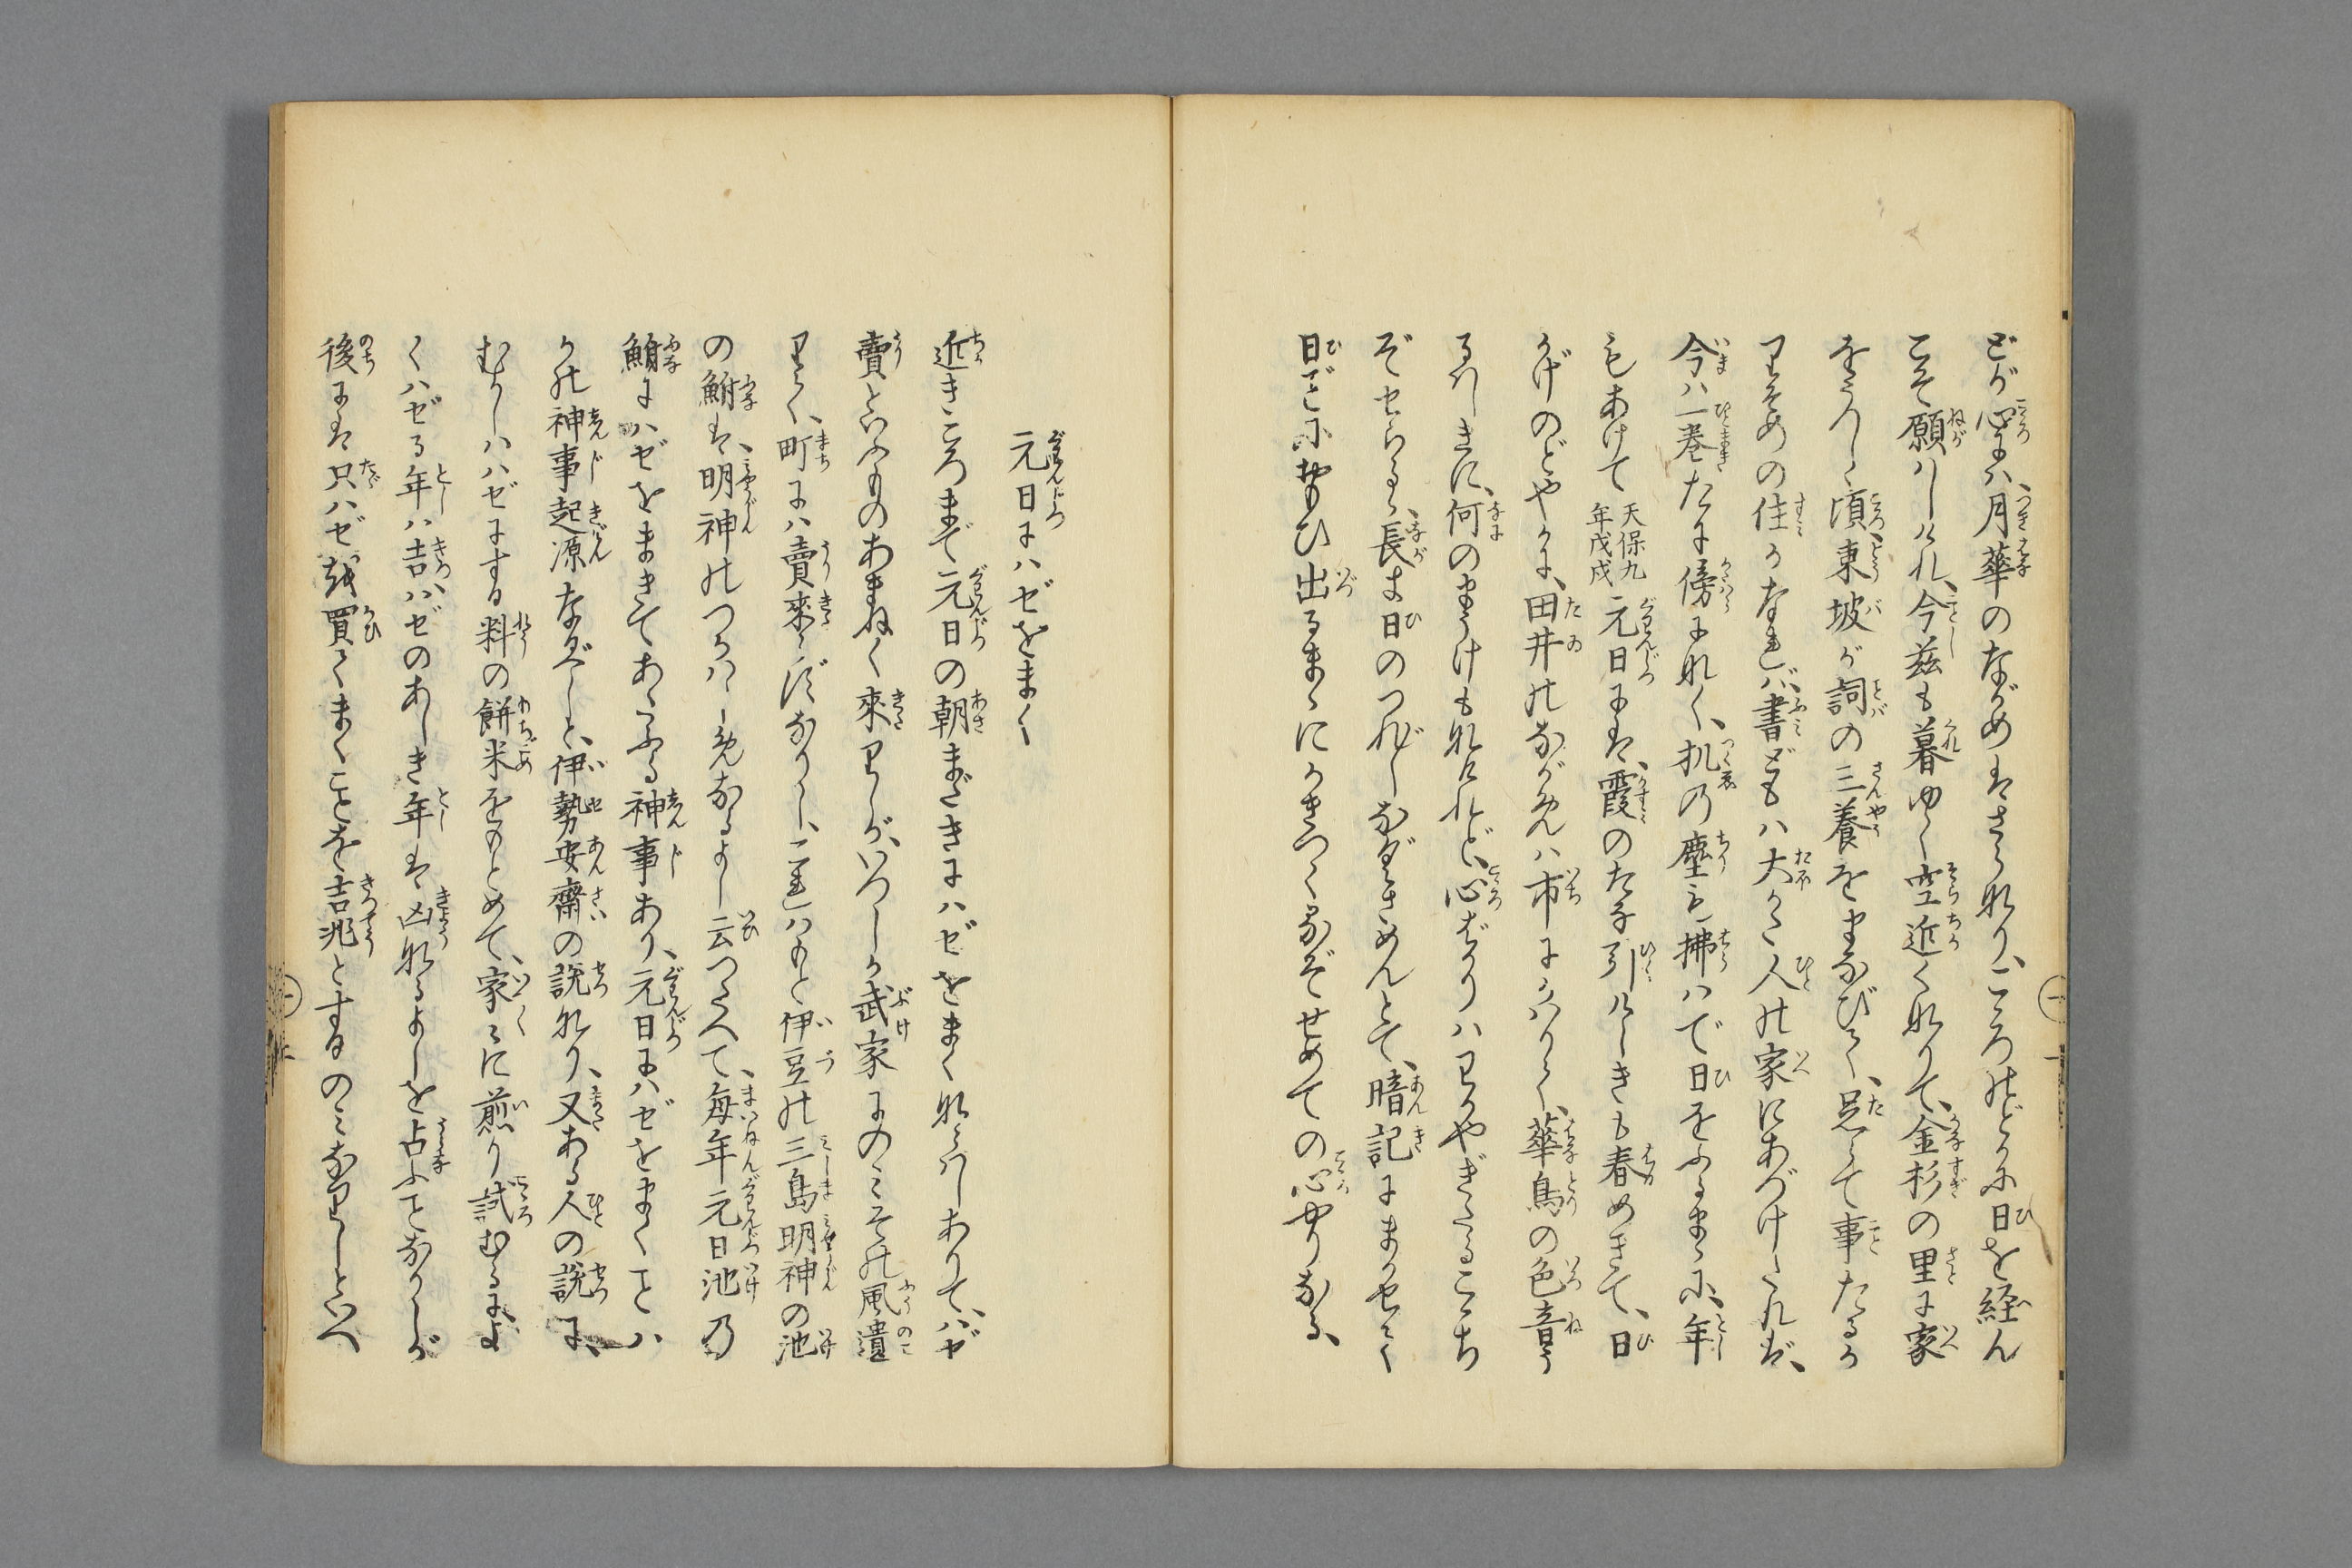 どが心には、月華のながめはさら也、こゝろのどかに日を経ん
こそ願はしけれ、今茲も暮ゆく空近くなりて、金杉の里に家
をうつしゝ頃、東坡が詞の三養をまなびて、足らで事たるか
りそめの住かなれば、書どもは大かた人の家にあづけたれば、
今は一巻だに傍になく、机の塵も拂はで日をふるまゝに、年
もあけて
天保九
年戊戌
元日には、霞のたな引けしきも春めきて、日
かげのどやかに、田井のながめハ市にかはりて、華鳥の色音う
るはしきに、何のまうけもなけれど、心ばかりハわかやぎたるこゝち
ぞせらるゝ、長き日のつれ〴〵なぐさめんとて、暗記にまかせて
日ごとにおもひ出るまゝにかきつく るぞせめての心やりなる、
元日にハゼをまく
近きころまで元日の朝まだきにハゼをまくならはしありて、ハゼ
賣といふものあまねく来りしが、いつしか武家にのみその風遺
りて、町には賣來らずなりし、これハもと伊豆の三島明神の池
の鮒は、明神のつかハしめなるよし云つたへて、毎年元日池の
鮒にハゼをまきてあたふる神事あり、元日にハゼをまくことハ
かの神事起源なるべしと、伊勢安齋の説なり、又ある人の説に、
むかしハハゼにする料の餅米をもとめて、家々に煎り試むるによ
くハゼる年ハ吉、ハゼのあしき年は凶なるよしを占ふことなりしが
後には只ハゼを買てまくことを吉兆とするのみなりしといへ